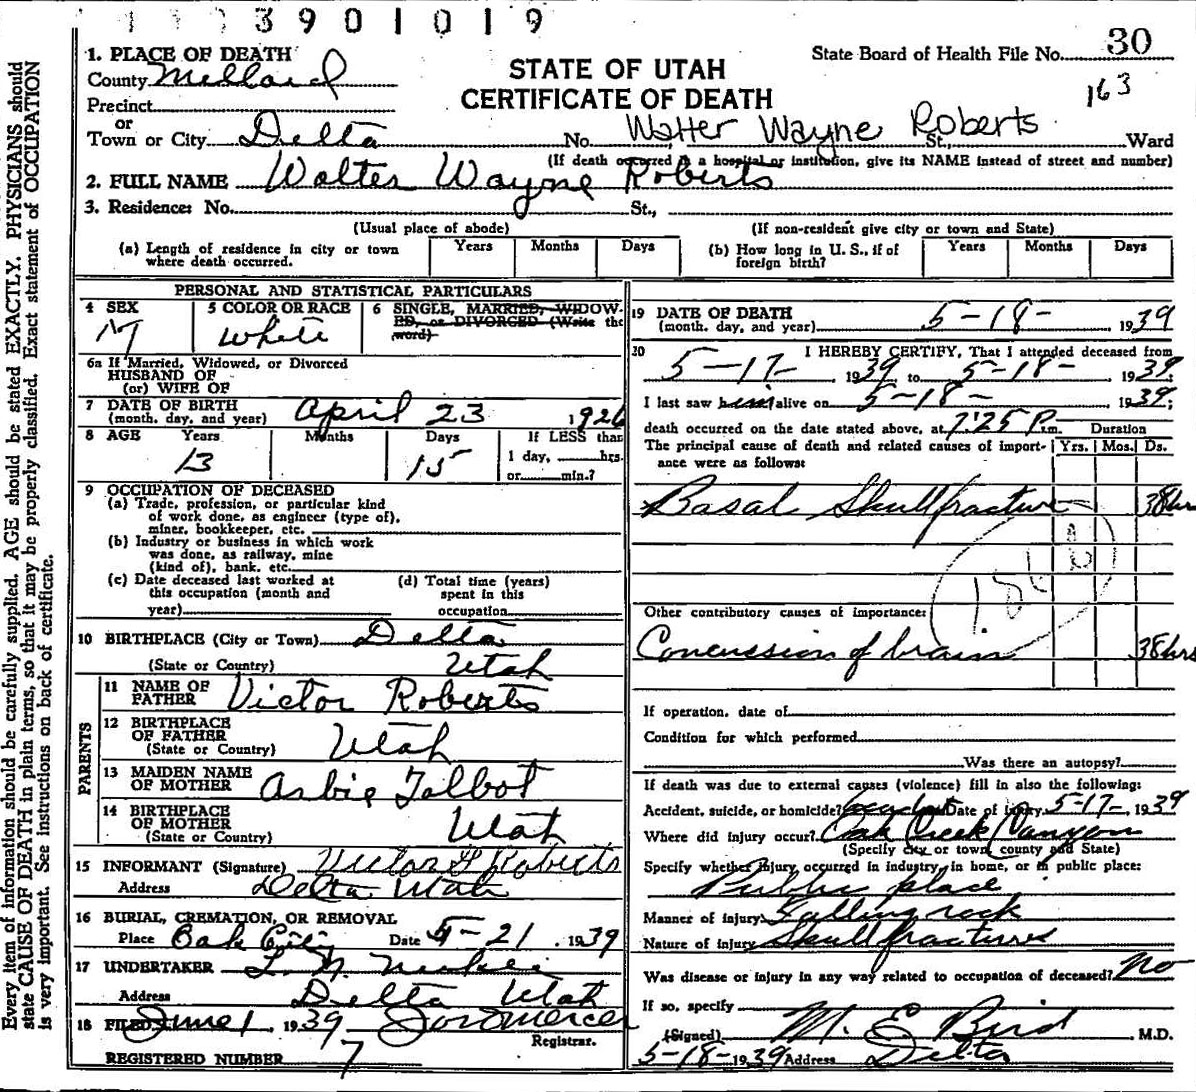 3901019
1. PLACE OF DEATH
County Millard
State Board of Health File No. 30
163
STATE OF UTAH
CERTIFICATE OF DEATH
Precinct
or
Town or City Delta No. Walter Wayne Roberts St., Ward
(If death occurred in a hospital or institution, give its NAME instead of street and number)
2. FULL NAME Walter Wayne Roberts
3. Residence: No. St.,
(Usual place of abode) (If non-resident give city or town and State)
(a) Length of residence in city or town where death occurred. Years Months Days
(b) How long in U. S., if of foreign birth? Years Months Days
PERSONAL AND STATISTICAL PARTICULARS
4 SEX M
5 COLOR OR RACE White
6 SINGLE, MARRIED, WIDOWED, or DIVORCED (Write the word)
6a If Married, Widowed, or Divorced
HUSBAND OF
(or) WIFE OF
7 DATE OF BIRTH
(month, day, and year) April 23 1926
8 AGE Years Months Days If LESS than
13 15 1 day, hrs.
or min.?
9 OCCUPATION OF DECEASED
(a) Trade, profession, or particular kind
of work done, as engineer (type of),
miner, bookkeeper, etc.
(b) Industry or business in which work
was done, as railway, mine
(kind of), bank, etc.
(c) Date deceased last worked at
this occupation (month and
year)
(d) Total time (years)
spent in this
occupation
10 BIRTHPLACE (City or Town) Delta
(State or Country) Utah
PARENTS
11 NAME OF
FATHER Victor Roberts
12 BIRTHPLACE
OF FATHER
(State or Country) Utah
13 MAIDEN NAME
OF MOTHER Talbot
14 BIRTHPLACE
OF MOTHER
(State or Country) Utah
15 INFORMANT (Signature) Victor Roberts
Address Delta Utah
16 BURIAL, CREMATION, OR REMOVAL
Place Oak City Date 5-21 1939
17 UNDERTAKER
Address Delta Utah
18 FILED June 1, 1939
Registrar.
REGISTERED NUMBER 7
19 DATE OF DEATH
(month, day, and year) 5-18- 1939
20 I HEREBY CERTIFY, That I attended deceased from
5-17- 1939 to 5-18- 1939.
I last saw him alive on 5-18- 1939;
death occurred on the date stated above, at 7:25 P.m. Duration
The principal cause of death and related causes of importance were as follows: Yrs. Mos. Ds.
Basal Skull fracture 38hrs
Other contributory causes of importance:
Concussion of brain 38hrs
If operation, date of
Condition for which performed
Was there an autopsy?
If death was due to external causes (violence) fill in also the following:
Accident, suicide, or homicide? accident Date of injury 5-17-, 1939
Where did injury occur? Oak Creek Canyon
(Specify city or town, county and State)
Specify whether injury occurred in industry, in home, or in public place:
Public place
Manner of injury Falling rock
Nature of injury Skull fracture
Was disease or injury in any way related to occupation of deceased? No
If so, specify
(Signed) M. E. Bird M.D.
5-18-1939 Address Delta
Every item of information should be carefully supplied. AGE should be stated EXACTLY. PHYSICIANS should
state CAUSE OF DEATH in plain terms, so that it may be properly classified. Exact statement of OCCUPATION
is very important. See instructions on back of certificate.